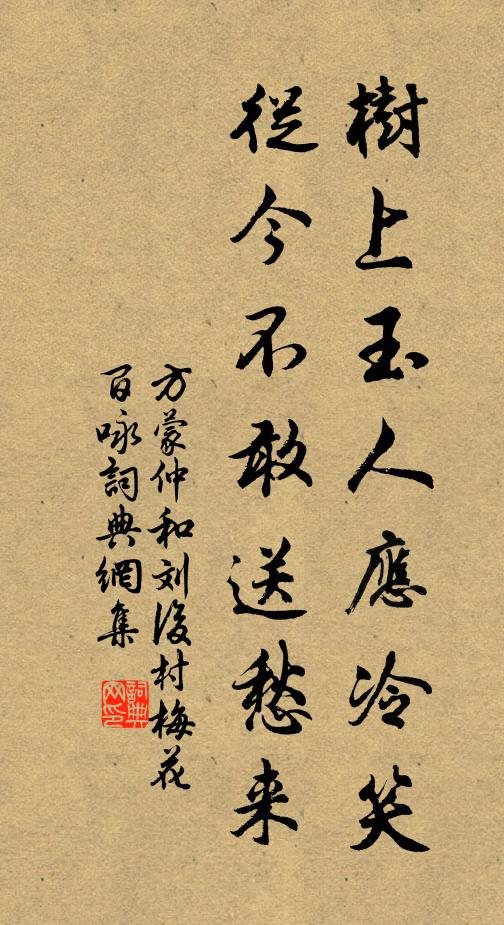 樹上玉人應冷笑
從今不敢送愁来
方蒙仲和刘後村梅花
百咏詞典網集
詞典网印